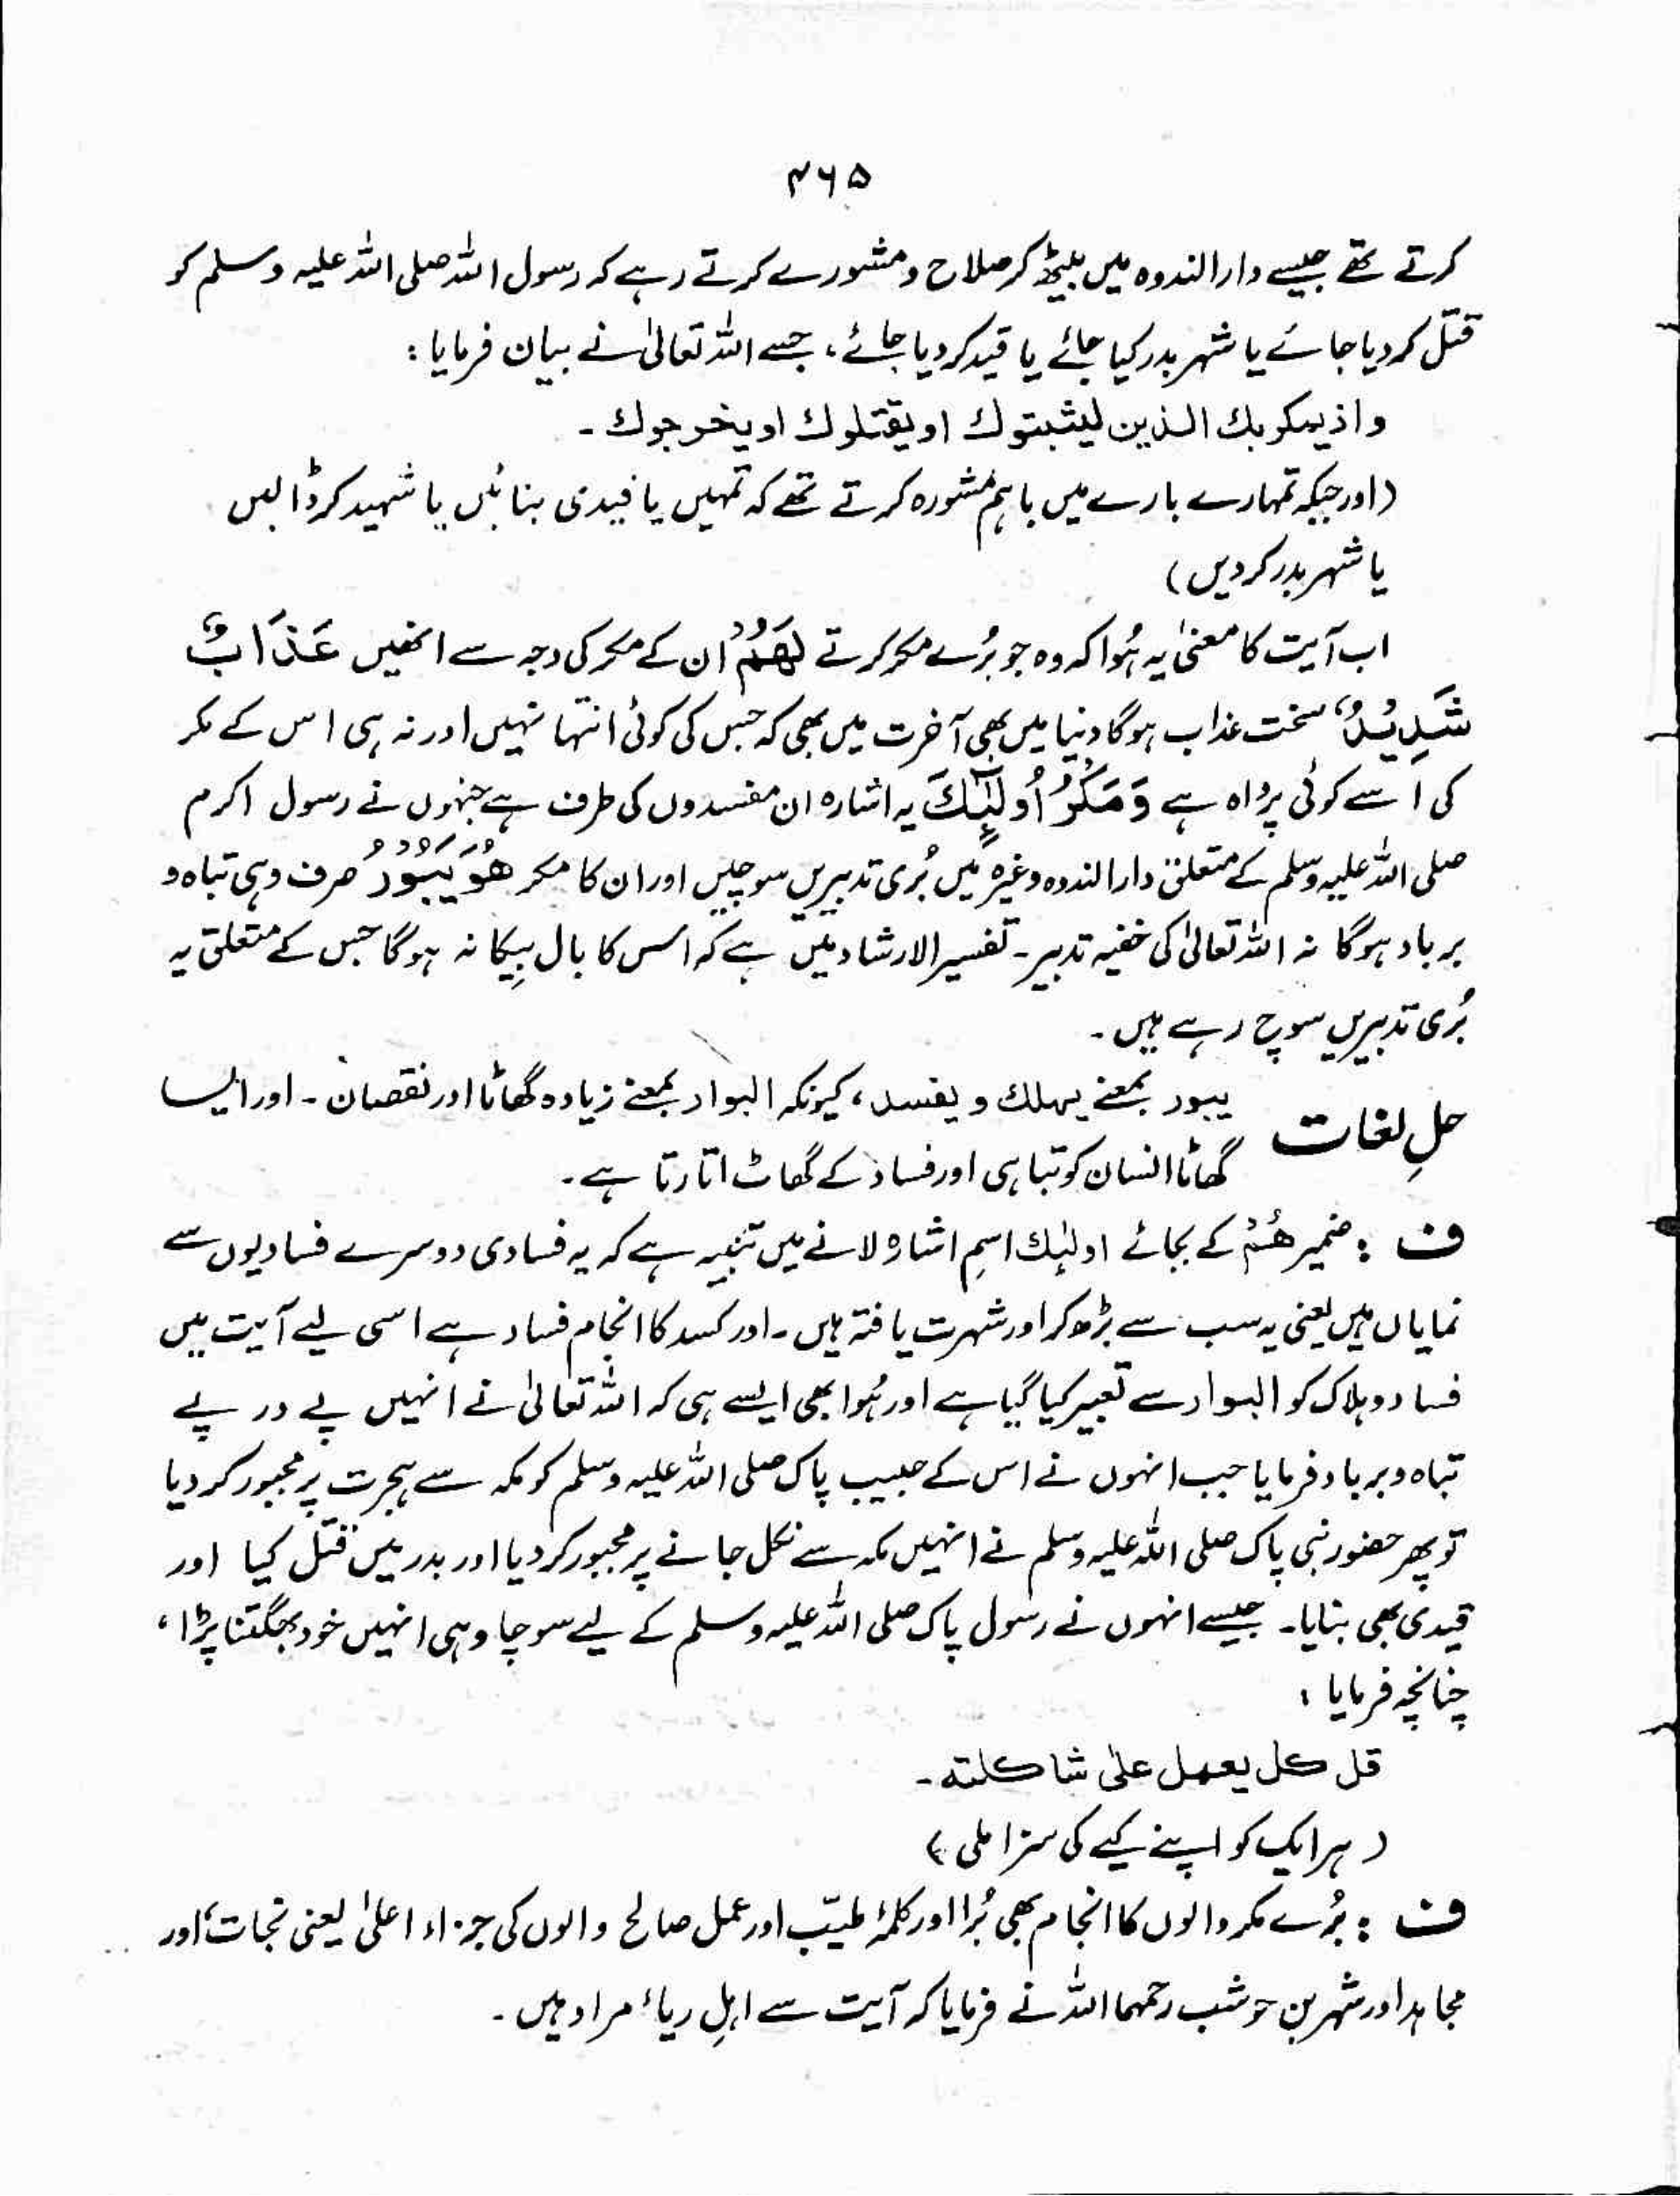 ۴۶۵
کرتے تھے جیسے دارالندوہ میں بیٹھ کر صلاح و مشورے کرتے رہے کہ رسول اللہ صلی اللہ علیہ وسلم کو
قتل کر دیا جائے یا شہر بدر کیا جائے یا قید کر دیا جائے، جسے اللہ تعالیٰ نے بیان فرمایا :
واذ یمکر بك الذین لیثبتوك او یقتلوك او یخرجوك ۔
(اور جبکہ تمہارے بارے میں باہم مشورہ کرتے تھے کہ تمہیں یا قیدی بنائیں یا شہید کر ڈالیں
یا شہر بدر کر دیں)
اب آیت کا معنیٰ یہ ہُوا کہ وہ جو بُرے مکر کرتے لَهُمْ ان کے مکر کی وجہ سے انھیں عَذَابٌ
شَدِیْدٌ سخت عذاب ہوگا دنیا میں بھی آخرت میں بھی کہ جس کی کوئی انتہا نہیں اور نہ ہی اس کے مکر
کی اسے کوئی پرواہ ہے وَمَكْرُ اُولٰٓئِكَ یہ اشارہ ان مفسدوں کی طرف ہے جنہوں نے رسول اکرم
صلی اللہ علیہ وسلم کے متعلق دارالندوہ وغیرہ میں بُری تدبیریں سوچیں اور ان کا مکر هُوَ یَبُوْرُ صرف وہی تباہ و
برباد ہوگا نہ اللہ تعالیٰ کی خفیہ تدبیر ۔ تفسیر الارشاد میں ہے کہ اس کا بال بِیکا نہ ہوگا جس کے متعلق یہ
بُری تدبیریں سوچ رہے ہیں ۔
حلِ لغات یبور بمعنے یہلك و یفسد، کیونکہ البوار بمعنے زیادہ گھاٹا اور نقصان ۔ اور ایسا
گھاٹا انسان کو تباہی اور فساد کے گھاٹ اتارتا ہے ۔
ف : ضمیر هُمْ کے بجائے اولٰئك اسمِ اشارہ لانے میں تنبیہ ہے کہ یہ فسادی دوسرے فسادیوں سے
نمایاں ہیں یعنی یہ سب سے بڑھ کر اور شہرت یافتہ ہیں ۔ اور کسد کا انجام فساد ہے اسی لیے آیت میں
فساد و ہلاک کو البوار سے تعبیر کیا گیا ہے اور ہُوا بھی ایسے ہی کہ اللہ تعالیٰ نے انہیں پے در پے
تباہ و برباد فرمایا جب انہوں نے اس کے حبیب پاک صلی اللہ علیہ وسلم کو مکہ سے ہجرت پر مجبور کر دیا
تو پھر حضور نبی پاک صلی اللہ علیہ وسلم نے انہیں مکہ سے نکل جانے پر مجبور کر دیا اور بدر میں قتل کیا اور
قیدی بھی بنایا ۔ جیسے انہوں نے رسول پاک صلی اللہ علیہ وسلم کے لیے سوچا وہی انہیں خود بھگتنا پڑا ،
چنانچہ فرمایا :
قل کل یعمل علیٰ شاکلتہ ۔
( ہر ایک کو اپنے کیے کی سزا ملی )
ف : بُرے مکر والوں کا انجام بھی بُرا اور کلمۂ طیّب اور عمل صالح والوں کی جزاء اعلیٰ یعنی نجات، اور
مجاہد اور شہر بن حوشب رحمہما اللہ نے فرمایا کہ آیت سے اہلِ ریاء مراد ہیں ۔